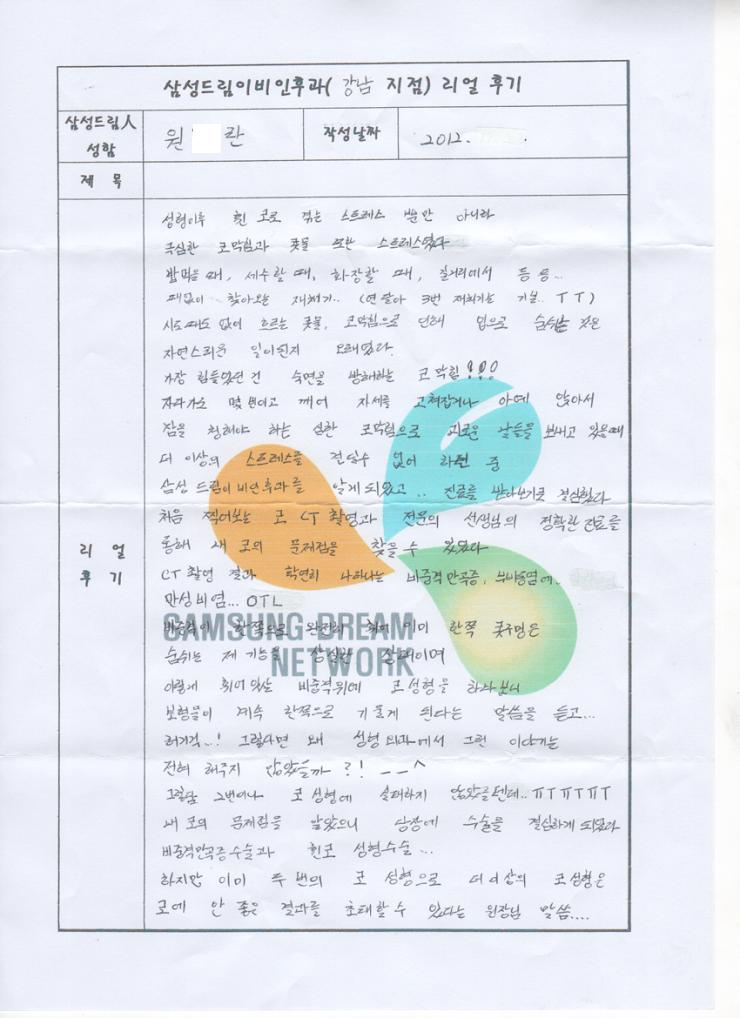 삼성드림이비인후과( 강남 지점) 리얼 후기
삼성드림人 성함
원 란
작성날짜
2012.
제 목
리 얼 후 기
성형이후 휜 코로 겪는 스트레스 뿐만 아니라
극심한 코막힘과 콧물 또한 스트레스였다
밥먹을때, 세수할 때, 화장할 때, 길거리에서 등등..
때없이 찾아오는 재채기.. (연달아 3번 재채기는 기본.. ㅜㅜ)
시도때도 없이 흐르는 콧물, 코막힘으로 인해 입으로 숨쉬는 것은
자연스러운 일이된지 오래였다.
가장 힘들었던건 숙면을 방해하는 코막힘!!!
자다가도 몇번이고 깨어 자세를 고쳐잡거나 아예 앉아서
잠을 청해야 하는 심한 코막힘으로 괴로운 날들을 보내고 있을때
더 이상의 스트레스를 견딜수 없어 하던 중
삼성 드림이비인후과를 알게되었고.. 진료를 받아보기로 결심했다
처음 찍어보는 코 CT촬영과 전문의 선생님의 정확한 진료를
통해 내 코의 문제점을 찾을 수 있었다
CT촬영 결과 확연히 나타나는 비중격만곡증, 부비동염에..
만성비염... OTL
비중격이 한쪽으로 완전히 휘어 이미 한쪽 콧구멍은
숨쉬는 제 기능을 상실한 상태이며
이렇게 휘어있는 비중격위에 코성형을 하다보니
보형물이 계속 한쪽으로 기울게 된다는 말씀을 듣고...
허거걱..! 그렇다면 왜 성형외과에서 그런 이야기는
전혀 해주지 않았을까?! ㅡㅡ^
그랬담 2번이나 코 성형에 실패하지 않았을텐데..ㅠㅠㅠㅠ
내 코의 문제점을 알았으니 당장에 수술을 결심하게 되었다
비중격만곡증수술과 휜코 성형수술...
하지만 이미 두번의 코 성형으로 더이상의 코성형은
코에 안 좋은 결과를 초래할수 있다는 원장님 말씀....
SAMSUNG DREAM
NETWORK